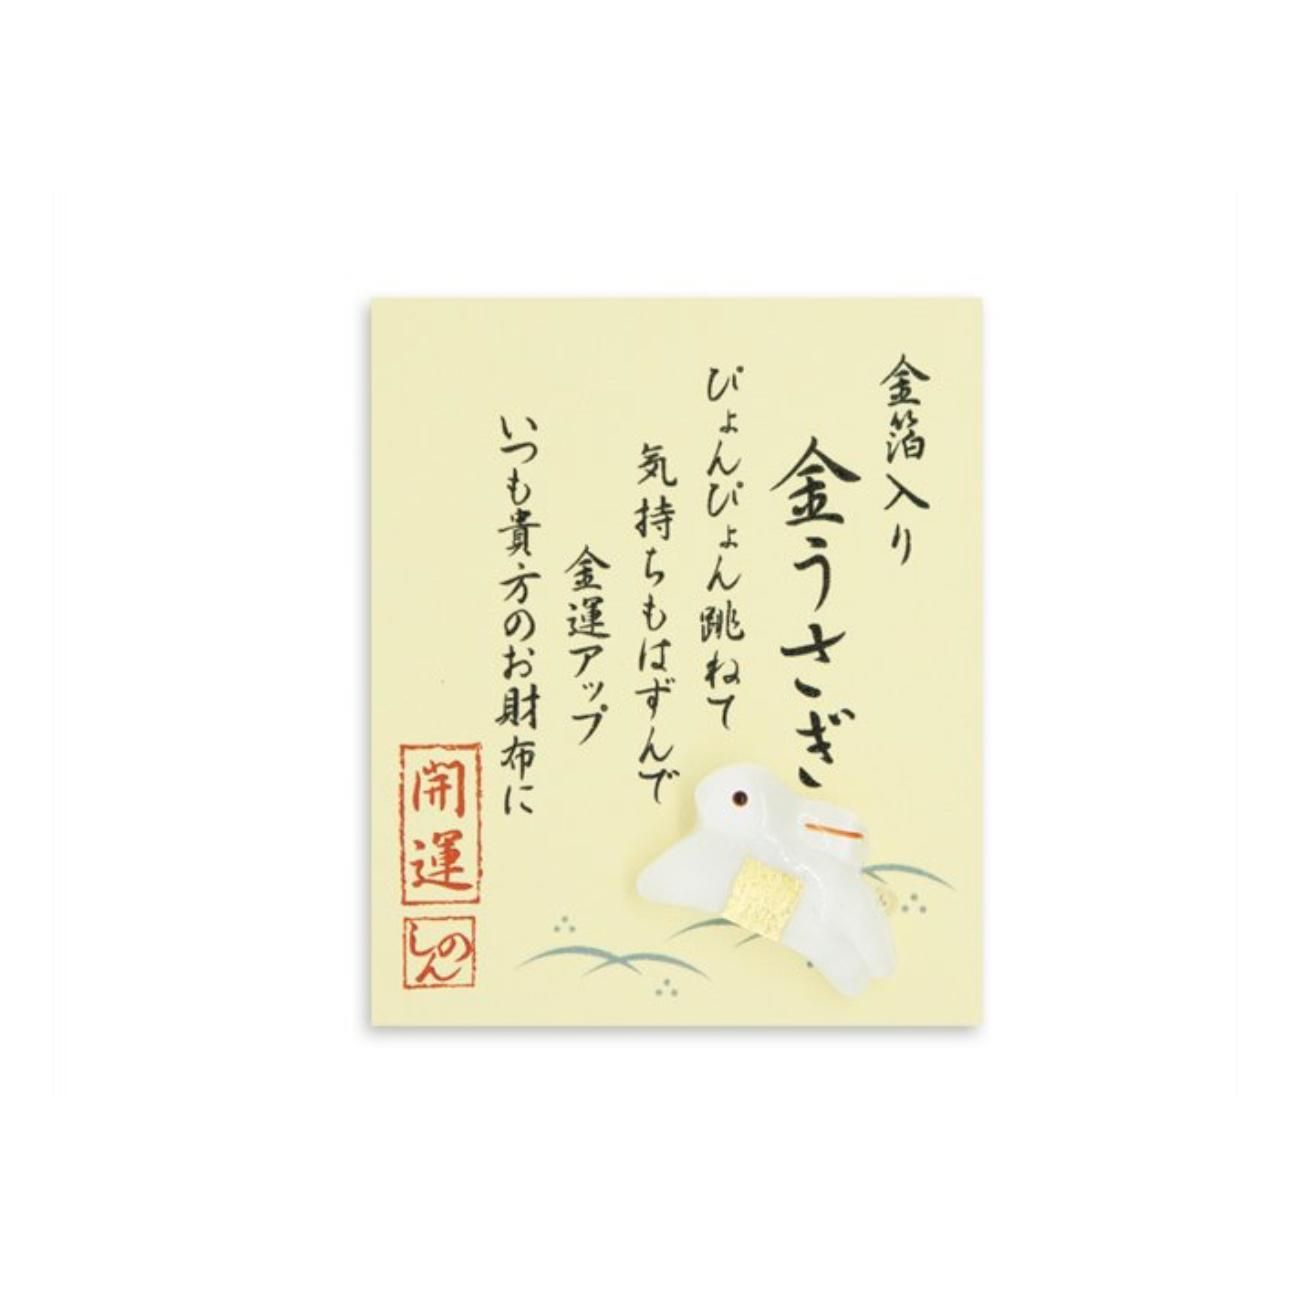 金箔入り
金うさぎ
ぴょんぴょん跳ねて
気持ちもはずんで
金運アップ
いつも貴方のお財布に
開運
しのん